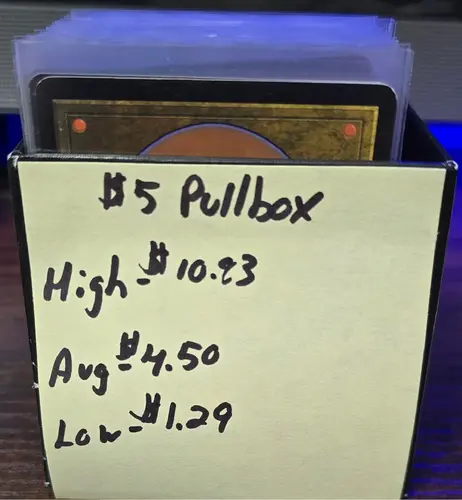 $5 Pullbox
High-$10.93
Avg-$4.50
Low-$1.29